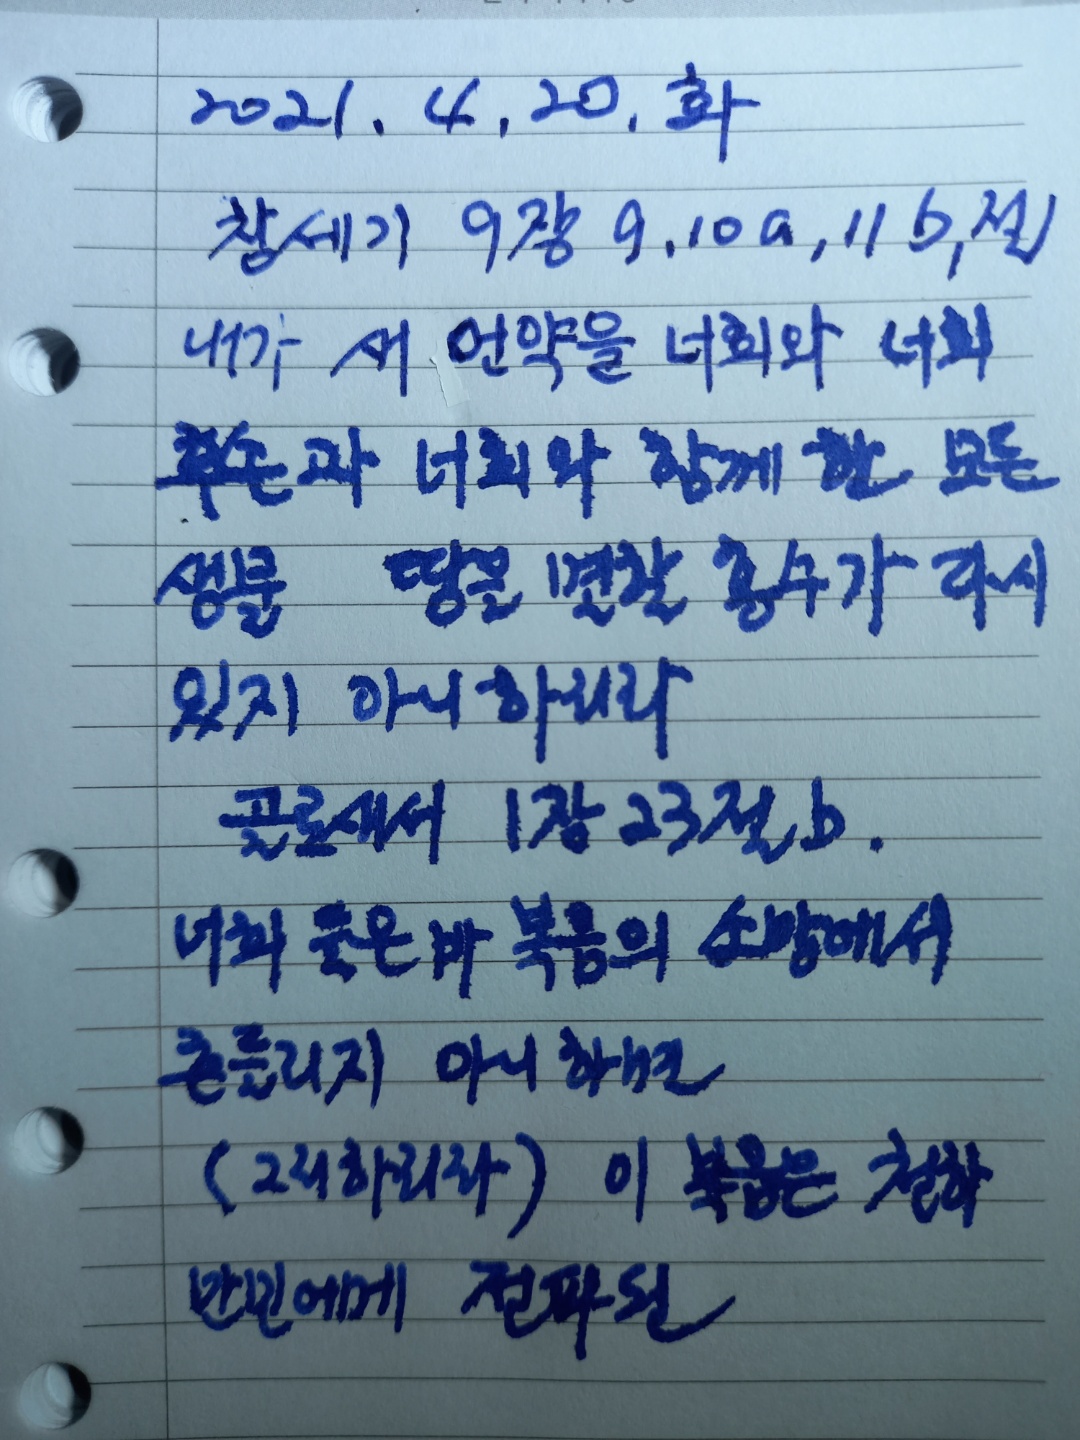 2021. 4. 20. 화
창세기 9장 9.10a, 11 b,절
내가 새 언약을 너희와 너희
후손과 너희와 함께 한 모든
생물 땅을 멸할 홍수가 다시
있지 아니하리라
골로새서 1장 23절 b.
너희 들은 바 복음의 소망에서
흔들리지 아니하면
(그리하리라) 이 복음은 천하
만민에게 전파된